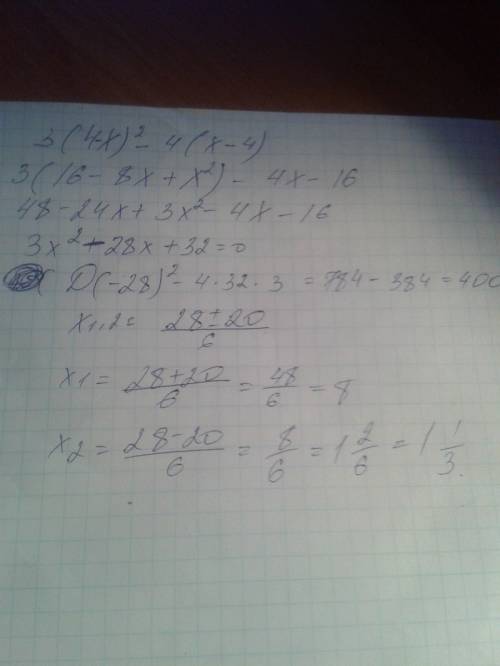 3(4-x)² - 4(x-4)
3(16 - 8x + x²) - 4x - 16
48 - 24x + 3x² - 4x - 16
3x² - 28x + 32 = 0
D(-28)² - 4·32·3 = 784 - 384 = 400
x₁,₂ = (28 ± 20)/6
x₁ = (28+20)/6 = 48/6 = 8
x₂ = (28-20)/6 = 8/6 = 1 2/6 = 1 1/3.